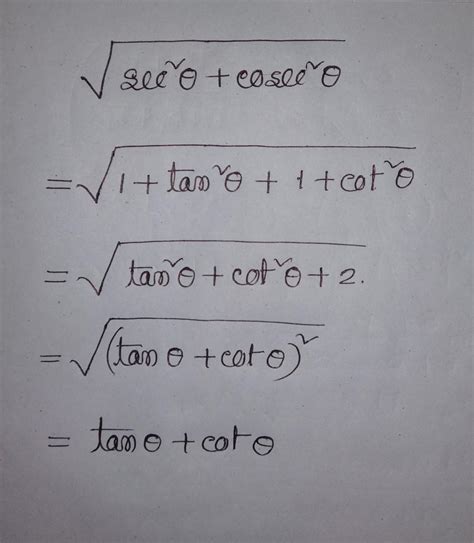 √(sec²θ + cosec²θ)
= √(1 + tan²θ + 1 + cot²θ)
= √(tan²θ + cot²θ + 2.)
= √((tan θ + cot θ)²)
= tan θ + cot θ